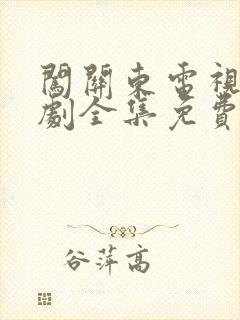 闖關東電視
劇全集免費
谷萍高